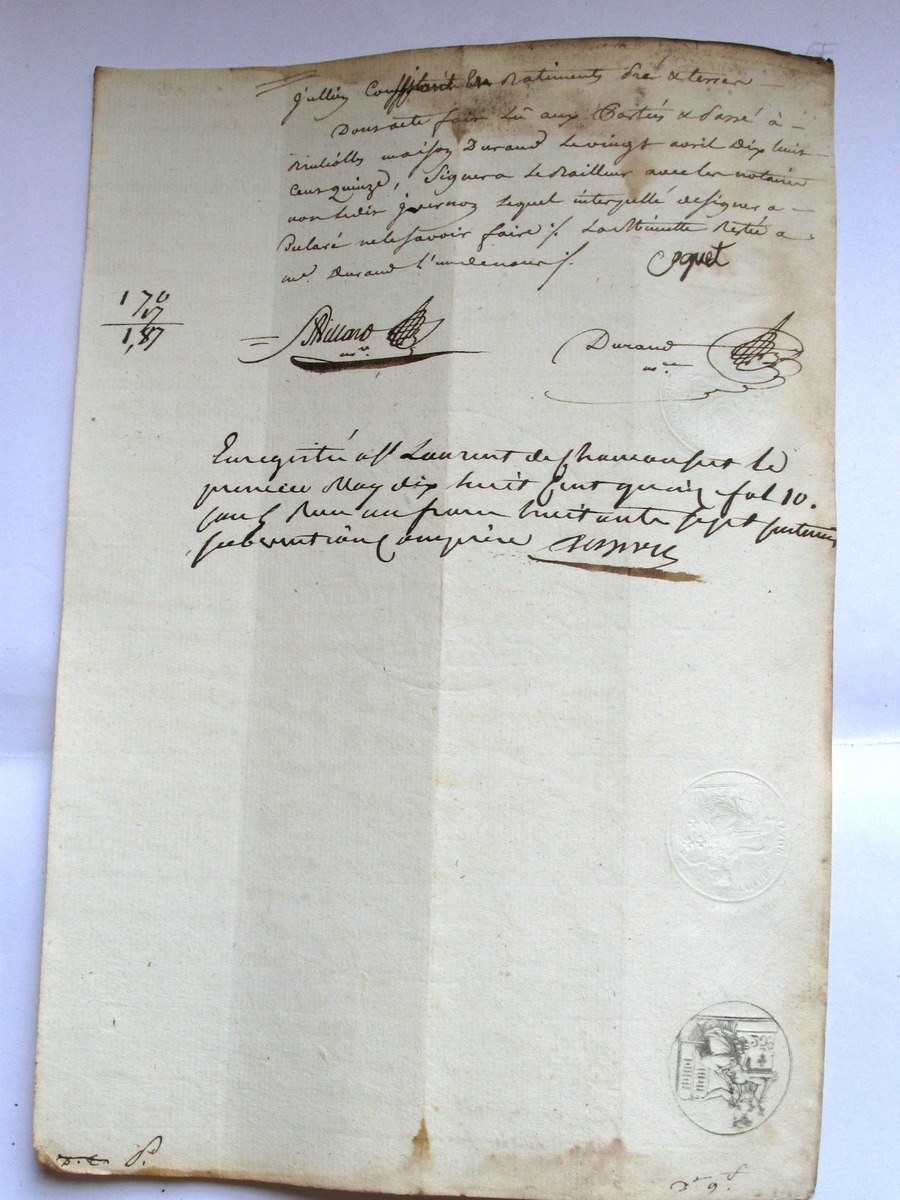 jullien Consistant En Batiments pré & terres
Dont acte fait Lû aux Parties & Passé à
maison Durand Le vingt avril Dix huit
Cent quinze, Signera Le Bailleur avec les notaires
non ledit jvernoz lequel interpellé de signer a
Declaré ne le savoir faire ./. La Minutte Restée a
me. Durand l'un de nous ./.
Coquet
170
17
1,87
Billard
nre.
Durand
nre
Enregistré a St Laurent de Chamousset le
premier May dix huit Cent quinze fol 10.
Reçu un franc huitante sept centimes
subvention Comprise